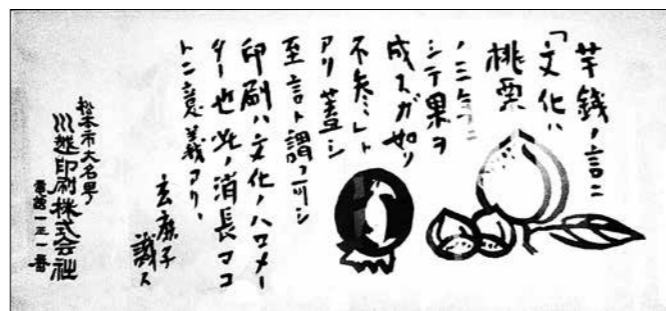 芋銭ノ言ニ
「文化ハ
桃栗
ノ三年ニ
シテ果ヲ
成スガ如ク
不矣」ト
アリ蓋シ
至言ト謂フ可シ
印刷ハ文化ノバロメー
ター也此ノ消長マコ
トニ意義アリ、
玄鹿子
識ス
松本市大名町
川越印刷株式会社
電話一三一番